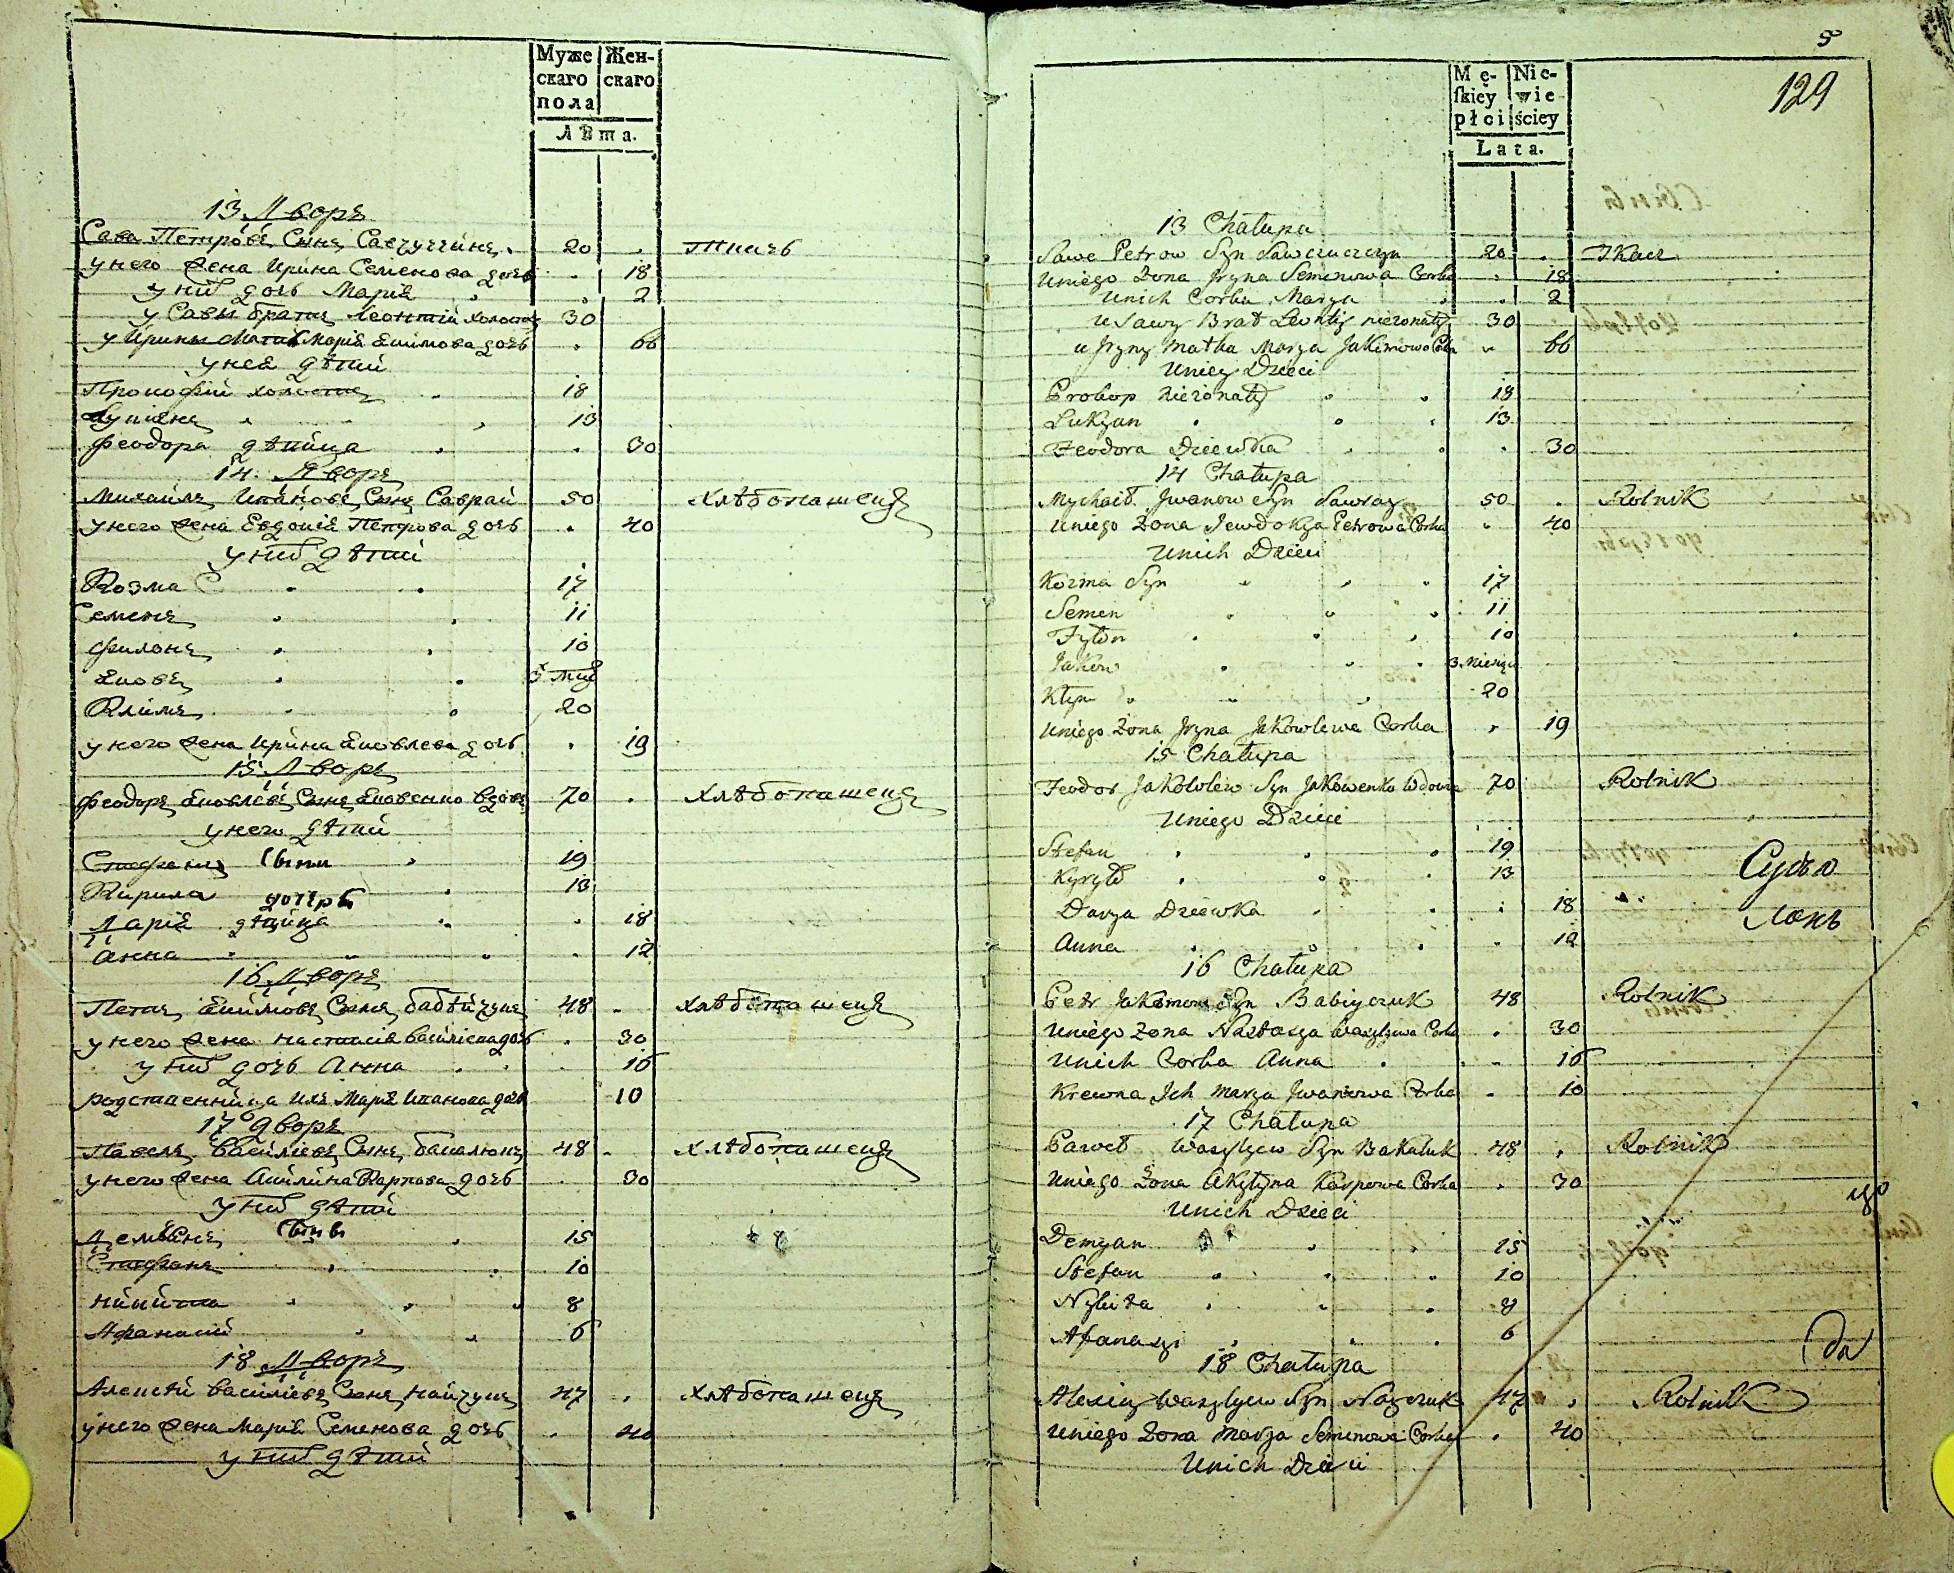 Муже
скаго
пола
Жен-
скаго
Лѣта.
13 Дворъ
Сава Петровъ Сынъ Савчучинъ 20 Ткачъ
у него жена Ирина Семенова дочь 18
у них дочь Марія 2
у Савы братъ Леонтій холостъ 30
у Ирины Матка Марія Якимова дочь 66
у нея дѣти
Прокофій холостъ 18
Лукіянъ 13
Феодора дѣвица 30
14 Дворъ
Михайлъ Ивановъ Сынъ Саврай 50 хлѣбопашецъ
у него жена Евдокія Петрова дочь 40
у них дѣти
Козма С 17
Семенъ 11
Филонъ 10
Яковъ 3 мц
Климъ 20
у него жена Ирина Яковлева дочь 19
15 Дворъ
Феодоръ Яковлевъ Сынъ Яковенко вдовъ 70 хлѣбопашецъ
у него дѣти
Стефанъ Сыни 19
Кирила 13
дочерь
Дарія дѣвица 18
Анна 12
16 Дворъ
Петръ Якимовъ Сынъ бабѣйчукъ 48 хлѣбопашецъ
у него жена Настасія Василіева дочь 30
у них дочь Анна 16
родственница ихъ Марія Иванова дочь 10
17 Дворъ
Павелъ Василіевъ Сынъ бакалюкъ 48 хлѣбопашецъ
у него жена Акилина Карпова дочь 30
у них дѣти
Демянъ Сынъ 15
Стефанъ 10
Никита 8
Афанасій 6
18 Дворъ
Алексѣй Василіевъ Сынъ Найчукъ 47 хлѣбопашецъ
у него жена Марія Семенова дочь 40
у них дѣти
5
129
Mę-
ſkiey
płci
Nie-
wie
ściey
Lata.
13 Chałupa
Sawa Petrow Syn Sawczuczyn 20 Tkacz
Uniego Zona Jryna Semenowa Corka 18
Unich Corka Marya 2
u Sawy Brat Leontiy niezonaty 30
u Jryny Matka Marya Jakimowa Corka 66
Uniey Dzieci
Prokop niezonaty 18
Lukyan 13
Feodora Dziewka 30
14 Chałupa
Mychaił Jwanow Syn Sawray 50 Rolnik
Uniego Zona Jewdokya Petrowa Corka 40
Unich Dzieci
Kozma Syn 17
Semen 11
Fyłon 10
Jakow 3. miesiąc
Kłym 20
Uniego Zona Jryna Jakowlewa Corka 19
15 Chałupa
Feodor Jakowlew Syn Jakowenko Wdowiec 70 Rolnik
Uniego Dzieci
Stefan 19
Kyryło 13
Darya Dziewka 18
Anna 12
16 Chałupa
Petr Jakimow Syn Babiyczuk 48 Rolnik
Uniego Zona Nastasya Wasylewa Corka 30
Unich Corka Anna 16
Krewna Jch Marya Jwanowa Corka 10
17 Chałupa
Paweł Wasylew Syn Bakaluk 48 Rolnik
Uniego Zona Akylyna Karpowa Corka 30
Unich Dzieci
Demyan 15
Stefan 10
Nykita 8
Afanasy 6
18 Chałupa
Alexiey Wasylyew Syn Nayczuk 47 Rolnik
Uniego Zona Marya Semenowa Corka 40
Unich Dzieci